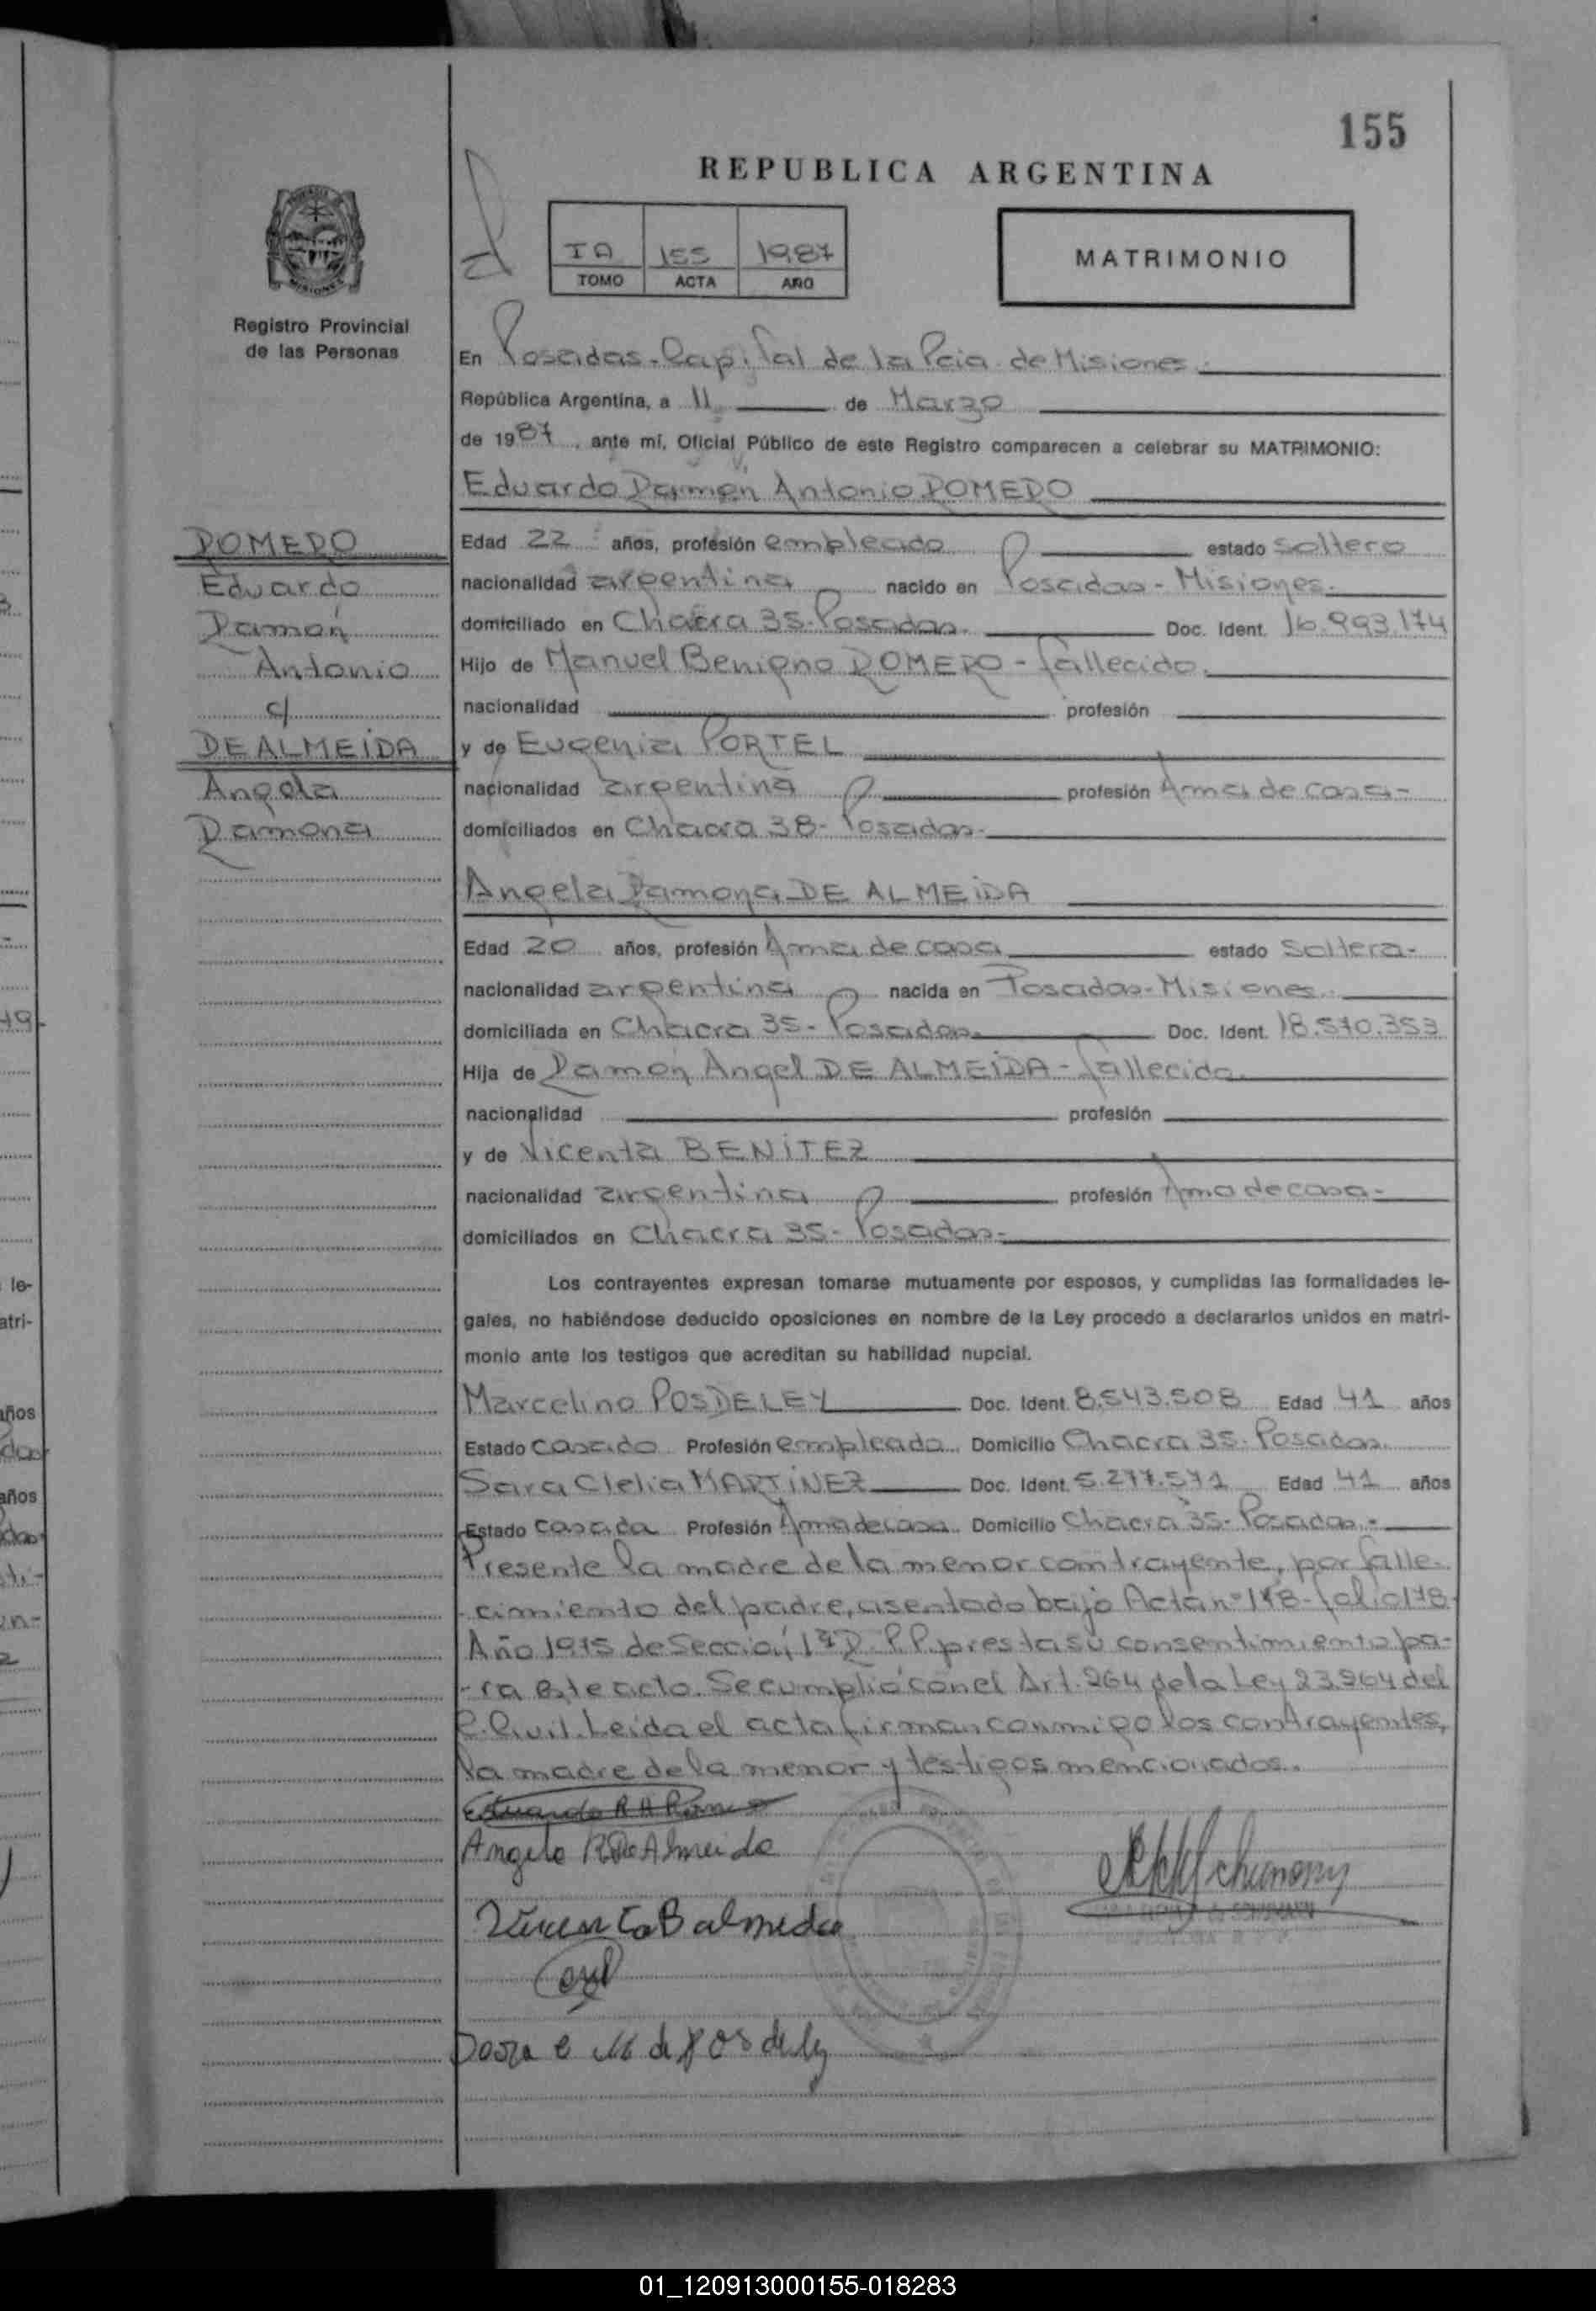 155
REPUBLICA ARGENTINA
IA 155 1987
TOMO ACTA AÑO
MATRIMONIO
Registro Provincial
de las Personas
En Posadas-Capital de la Pcia. de Misiones.
República Argentina, a 11 de Marzo
de 1987, ante mí, Oficial Público de este Registro comparecen a celebrar su MATRIMONIO:
Eduardo Ramón Antonio ROMERO
ROMERO
Eduardo
Ramón
Antonio
c/
DE ALMEIDA
Angela
Ramona
Edad 22 años, profesión empleado estado soltero
nacionalidad argentina nacido en Posadas-Misiones.
domiciliado en Chacra 35-Posadas. Doc. Ident. 16.993.174
Hijo de Manuel Benigno ROMERO-fallecido.
nacionalidad profesión
y de Eugenia PORTEL
nacionalidad argentina profesión Ama de casa-
domiciliados en Chacra 38-Posadas-
Angela Ramona DE ALMEIDA
Edad 20 años, profesión Ama de casa estado soltera-
nacionalidad argentina nacida en Posadas-Misiones.
domiciliada en Chacra 35-Posadas. Doc. Ident. 18.570.353
Hija de Ramón Angel DE ALMEIDA-fallecido.
nacionalidad profesión
y de Vicenta BENITEZ
nacionalidad argentina profesión Ama de casa-
domiciliados en Chacra 35-Posadas-
Los contrayentes expresan tomarse mutuamente por esposos, y cumplidas las formalidades le-
gales, no habiéndose deducido oposiciones en nombre de la Ley procedo a declararlos unidos en matri-
monio ante los testigos que acreditan su habilidad nupcial.
Marcelino POSDELEY Doc. Ident. 8.543.508 Edad 41 años
Estado casado Profesión empleado Domicilio Chacra 35-Posadas.
Sara Clelia MARTINEZ Doc. Ident. 5.277.571 Edad 41 años
Estado casada Profesión Ama de casa Domicilio Chacra 35-Posadas.-
Presente la madre de la menor contrayente, por falle-
-cimiento del padre, asentado bajo Acta nº 178-folio 178-
Año 1975 de Sección 1ª R.P.P. presta su consentimiento pa-
-ra este acto. Se cumplió con el Art. 264 de la Ley 23.264 del
C. Civil. Leida el acta firman conmigo los contrayentes,
la madre de la menor y testigos mencionados.
Eduardo R A Romero
Angela R. De Almeida
Vicenta B almeda
de Posdeley
01_120913000155-018283